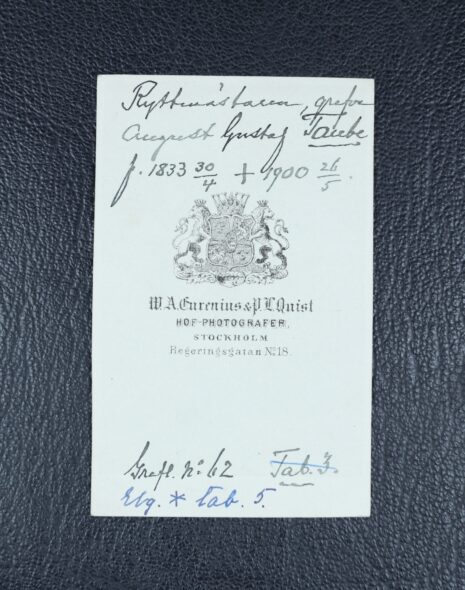 Ryttmästaren, grefve
August Gustaf Taube
f. 1833 30/4 + 1900 26/5.
W.A. Eurenius & P.L. Quist
HOF-PHOTOGRAFER,
STOCKHOLM
Regeringsgatan No 18.
Grefl. No 62 Tab. 3.
Elg. * tab. 5.